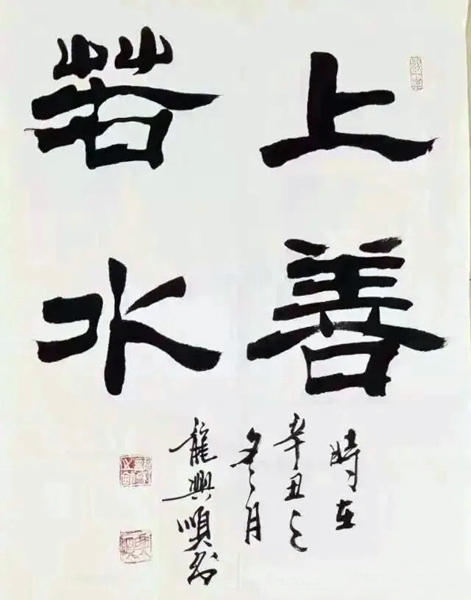 上善
若水
時在
辛丑之
冬月
龍興順書